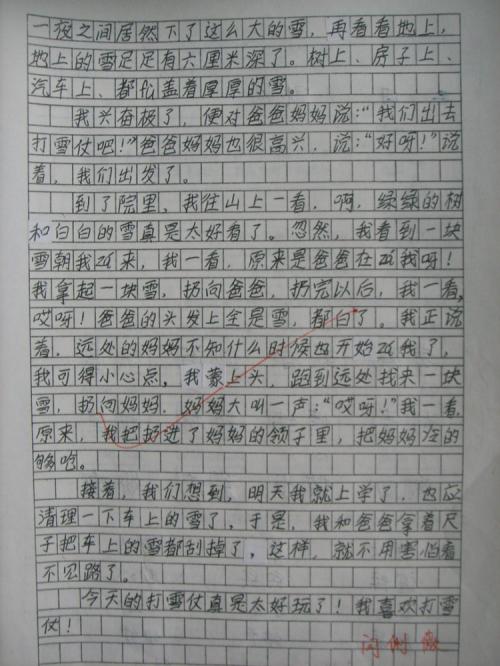 一夜之间居然下了这么大的雪，再看看地上，
地上的雪足足有六厘米深了。树上、房子上、
汽车上、都 盖着厚厚的雪。
我兴奋极了，便对爸爸妈妈说：“我们出去
打雪仗吧！”爸爸妈妈也很高兴，说：“好呀！”说
着，我们出发了。
到了院里，我往山上一看，啊，绿绿的树
和白白的雪真是太好看了。忽然，我看到一块
雪朝我 来，我一看，原来是爸爸在 我呀！
我拿起一块雪，扔向爸爸，扔完以后，我一看，
哎呀！爸爸的头发上全是雪，都白了。我正说
着，远处的妈妈不知什么时候也开始 我了，
我可得小心点，我蒙上头，跑到远处找来一块
雪，扔向妈妈，妈妈大叫一声：“哎呀！”我一看，
原来，我把扔进了妈妈的领子里，把妈妈冷的
够呛。
接着，我们想到，明天我就上学了，也应
清理一下车上的雪了，于是，我和爸爸拿着尺
子把车上的雪都刮掉了，这样，就不用害怕看
不见路了。
今天的打雪仗真是太好玩了！我喜欢打雪
仗！